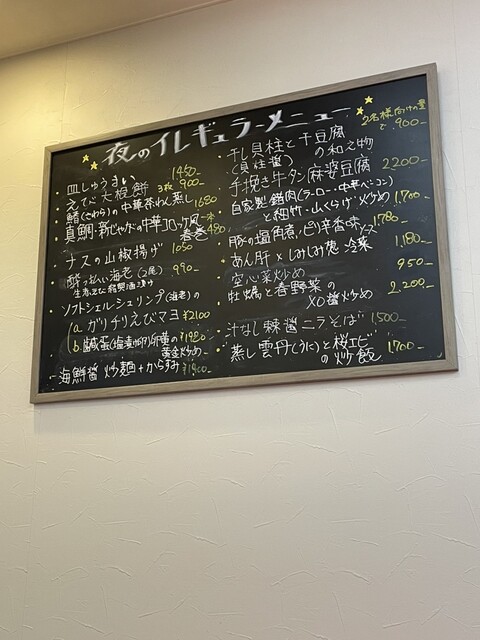 夜のイレギュラーメニュー
・皿しゅうまい 1450-
・えび大根餅 3枚 900-
・鰆(さわら)の中華茶わん蒸し 1680
・真鯛・新じゃがの中華コロッケ風春巻 一本 480
・ナスの山椒揚げ 1050
・酔っ払い海老(2尾) 990-
生えび紹興酒漬け
・ソフトシェルシュリンプ(海老)の
(a. ガリチリえびマヨ ¥2100
(b. 鹹蛋(塩漬卵)卵黄の 黄金炒め ¥1980
・海鮮醤炒麺+からすみ ¥1900-
2名様向けの量で
・干し貝柱と干豆腐(貝柱醤)の和之物 900-
・手挽き牛タン麻婆豆腐 2200-
・自家製臘肉(ラーロー・中華ベーコン)
と細竹・山くらげ炒め 1,700-
・豚の塩角煮、ピリ辛香味ソース 1,780-
・あん肝×しみしみ葱 冷菜 1,180-
・空心菜炒め 950-
・牡蠣と春野菜のXO醤炒め 2,200-
・汁なし辣醤ニラそば 1,500-
・蒸し雲丹(うに)と桜エビの炒飯 1,700-